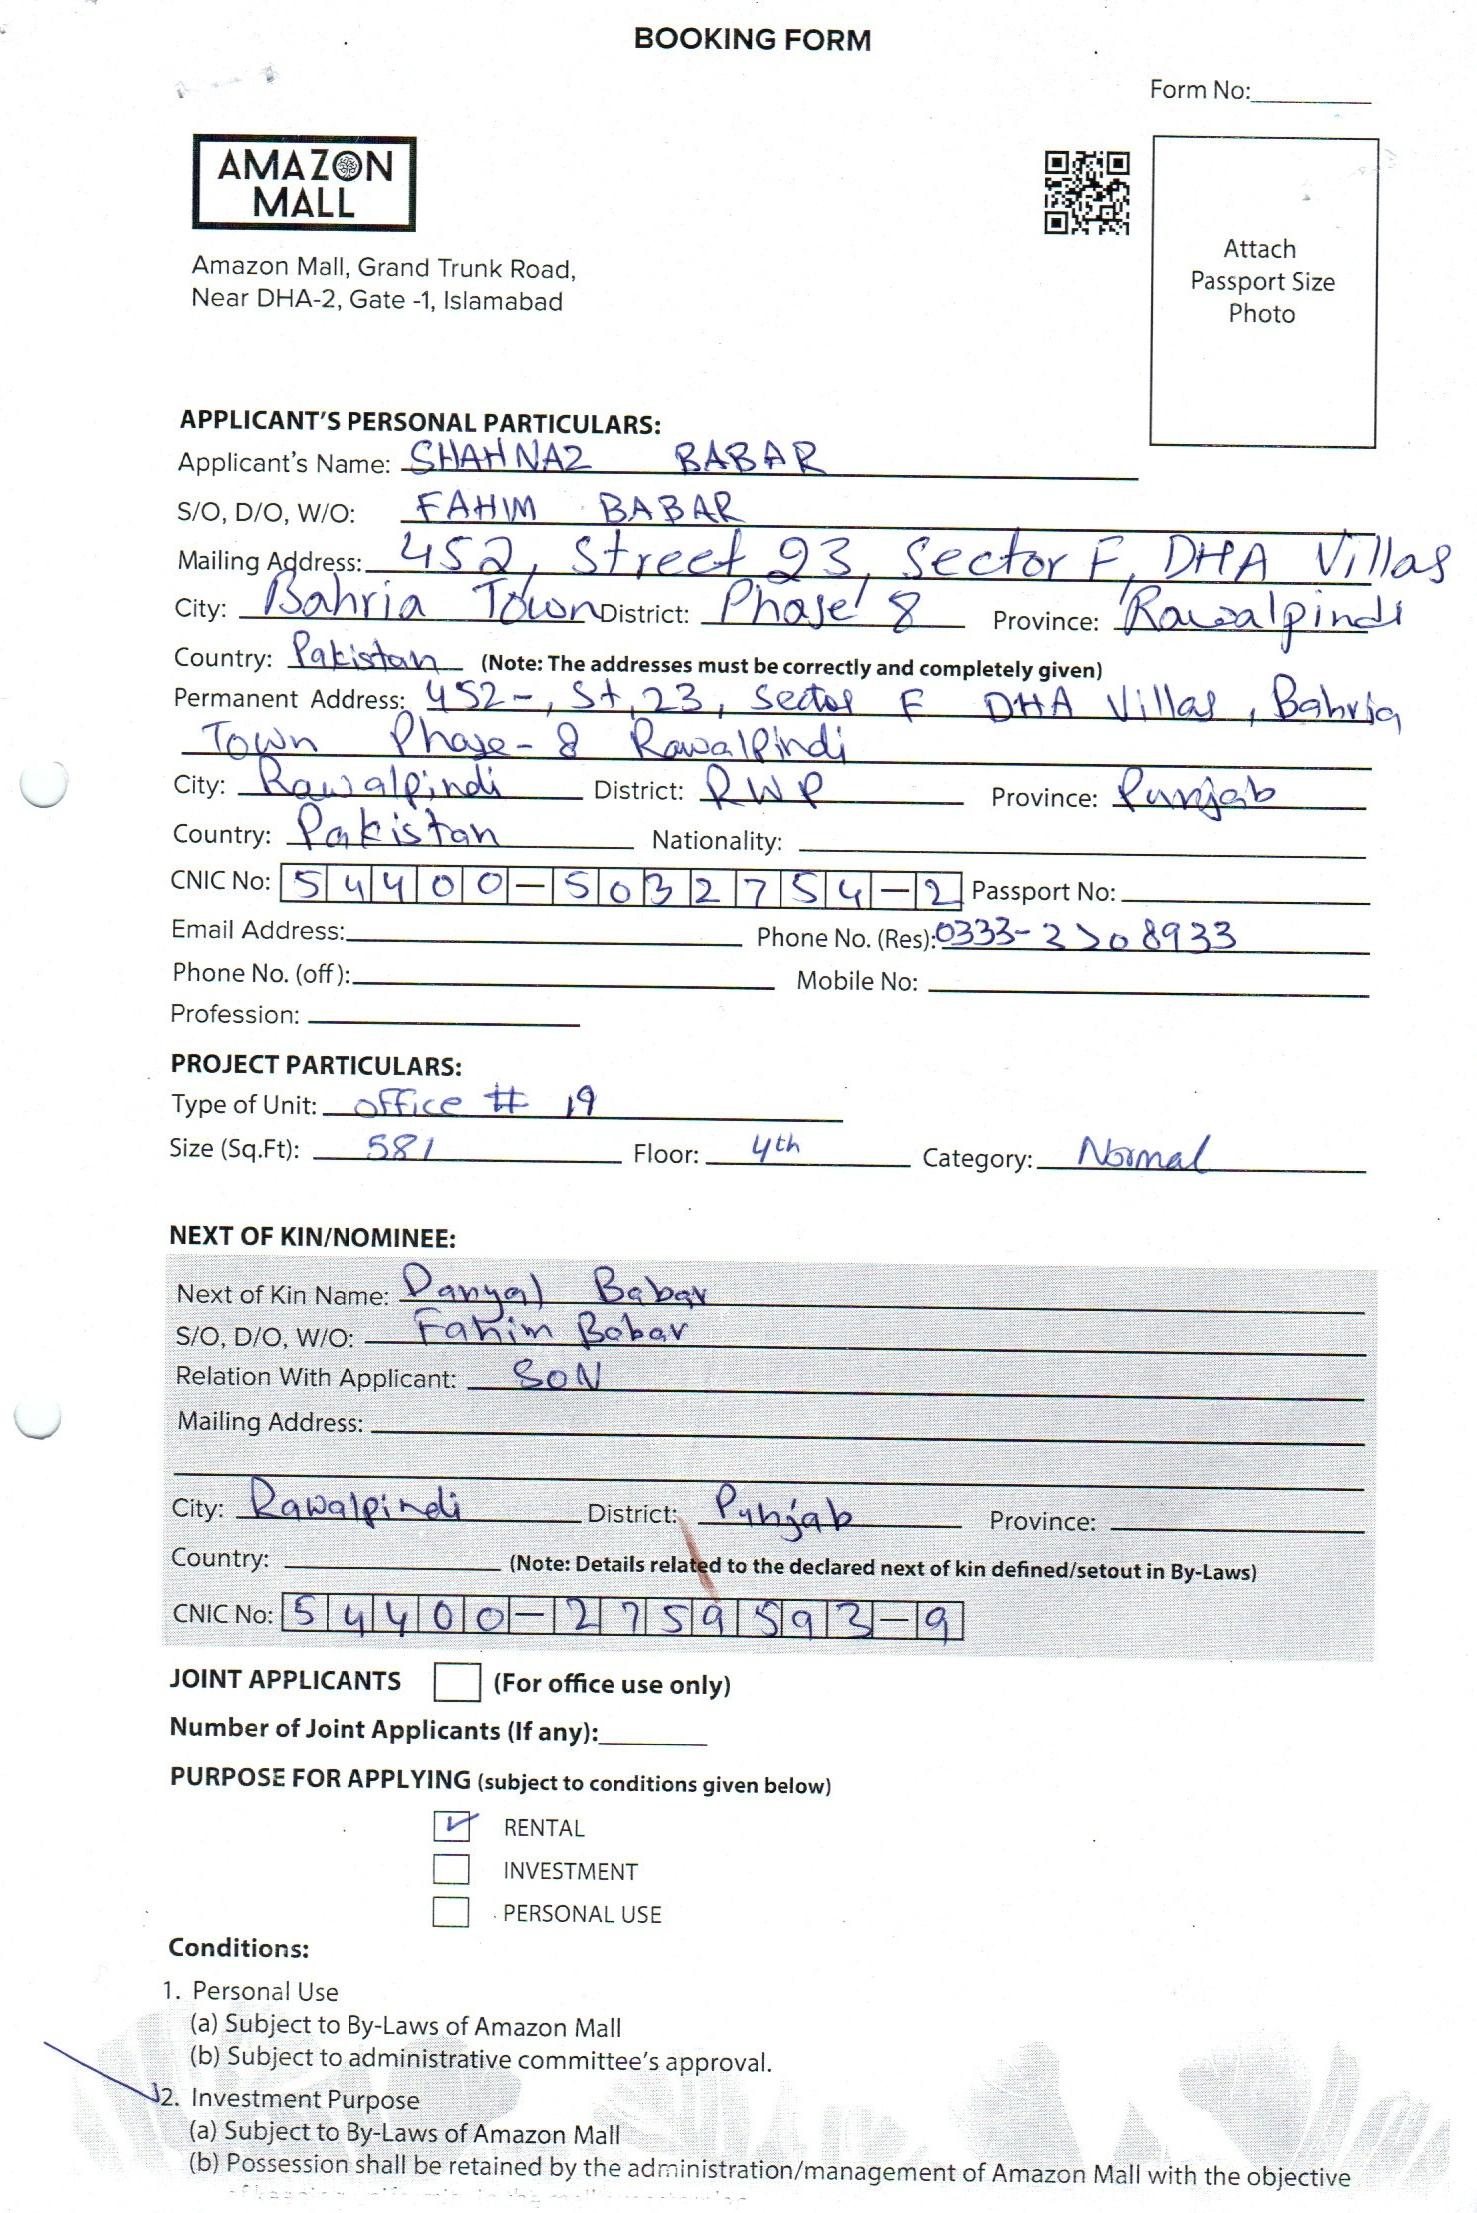 BOOKING FORM
Form No:
AMAZON
MALL
Attach
Passport Size
Photo
Amazon Mall, Grand Trunk Road,
Near DHA-2, Gate -1, Islamabad
APPLICANT'S PERSONAL PARTICULARS:
Applicant's Name: SHAHNAZ BABAR
S/O, D/O, W/O: FAHIM BABAR
Mailing Address: 452, Street 23, Sector F, DHA Villas
City: Bahria Town District: Phase 8 Province: Rawalpindi
Country: Pakistan (Note: The addresses must be correctly and completely given)
Permanent Address: 452-, St, 23, Sector F DHA Villas, Bahria
Town Phase-8 Rawalpindi
City: Rawalpindi District: RWP Province: Punjab
Country: Pakistan Nationality:
CNIC No: 54400-5032754-2 Passport No:
Email Address: Phone No. (Res):
Phone No. (off): Mobile No:
Profession:
PROJECT PARTICULARS:
Type of Unit: office # 19
Size (Sq.Ft): 581 Floor: 4th Category: Normal
NEXT OF KIN/NOMINEE:
Next of Kin Name: Danyal Babar
S/O, D/O, W/O: Fahim Babar
Relation With Applicant: SON
Mailing Address:
City: Rawalpindi District: Punjab Province:
Country: (Note: Details related to the declared next of kin defined/setout in By-Laws)
CNIC No: 54400-2759593-9
JOINT APPLICANTS (For office use only)
Number of Joint Applicants (If any):
PURPOSE FOR APPLYING (subject to conditions given below)
✓ RENTAL
INVESTMENT
PERSONAL USE
Conditions:
1. Personal Use
(a) Subject to By-Laws of Amazon Mall
(b) Subject to administrative committee's approval.
2. Investment Purpose
(a) Subject to By-Laws of Amazon Mall
(b) Possession shall be retained by the administration/management of Amazon Mall with the objective